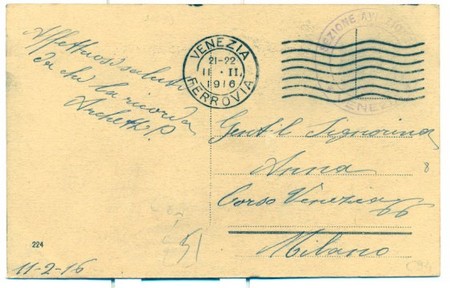 Affettuosi saluti
da chi la ricorda
Archetti P.
VENEZIA
21-22
11 · II
1916
FERROVIA
SEZIONE
VENEZIA
Gent.l Signorina
Anna
8
Corso Venezia 66
Milano
224
11-2-16